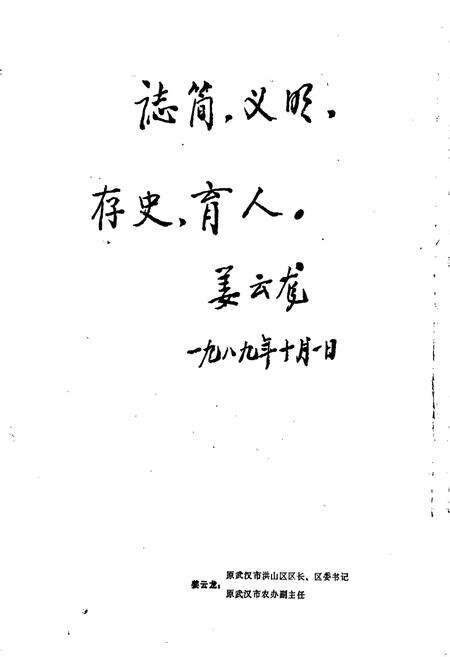 誌简，义明，
存史，育人。
姜云龙
一九八九年十月一日
姜云龙：原武汉市洪山区区长、区委书记
原武汉市农办副主任